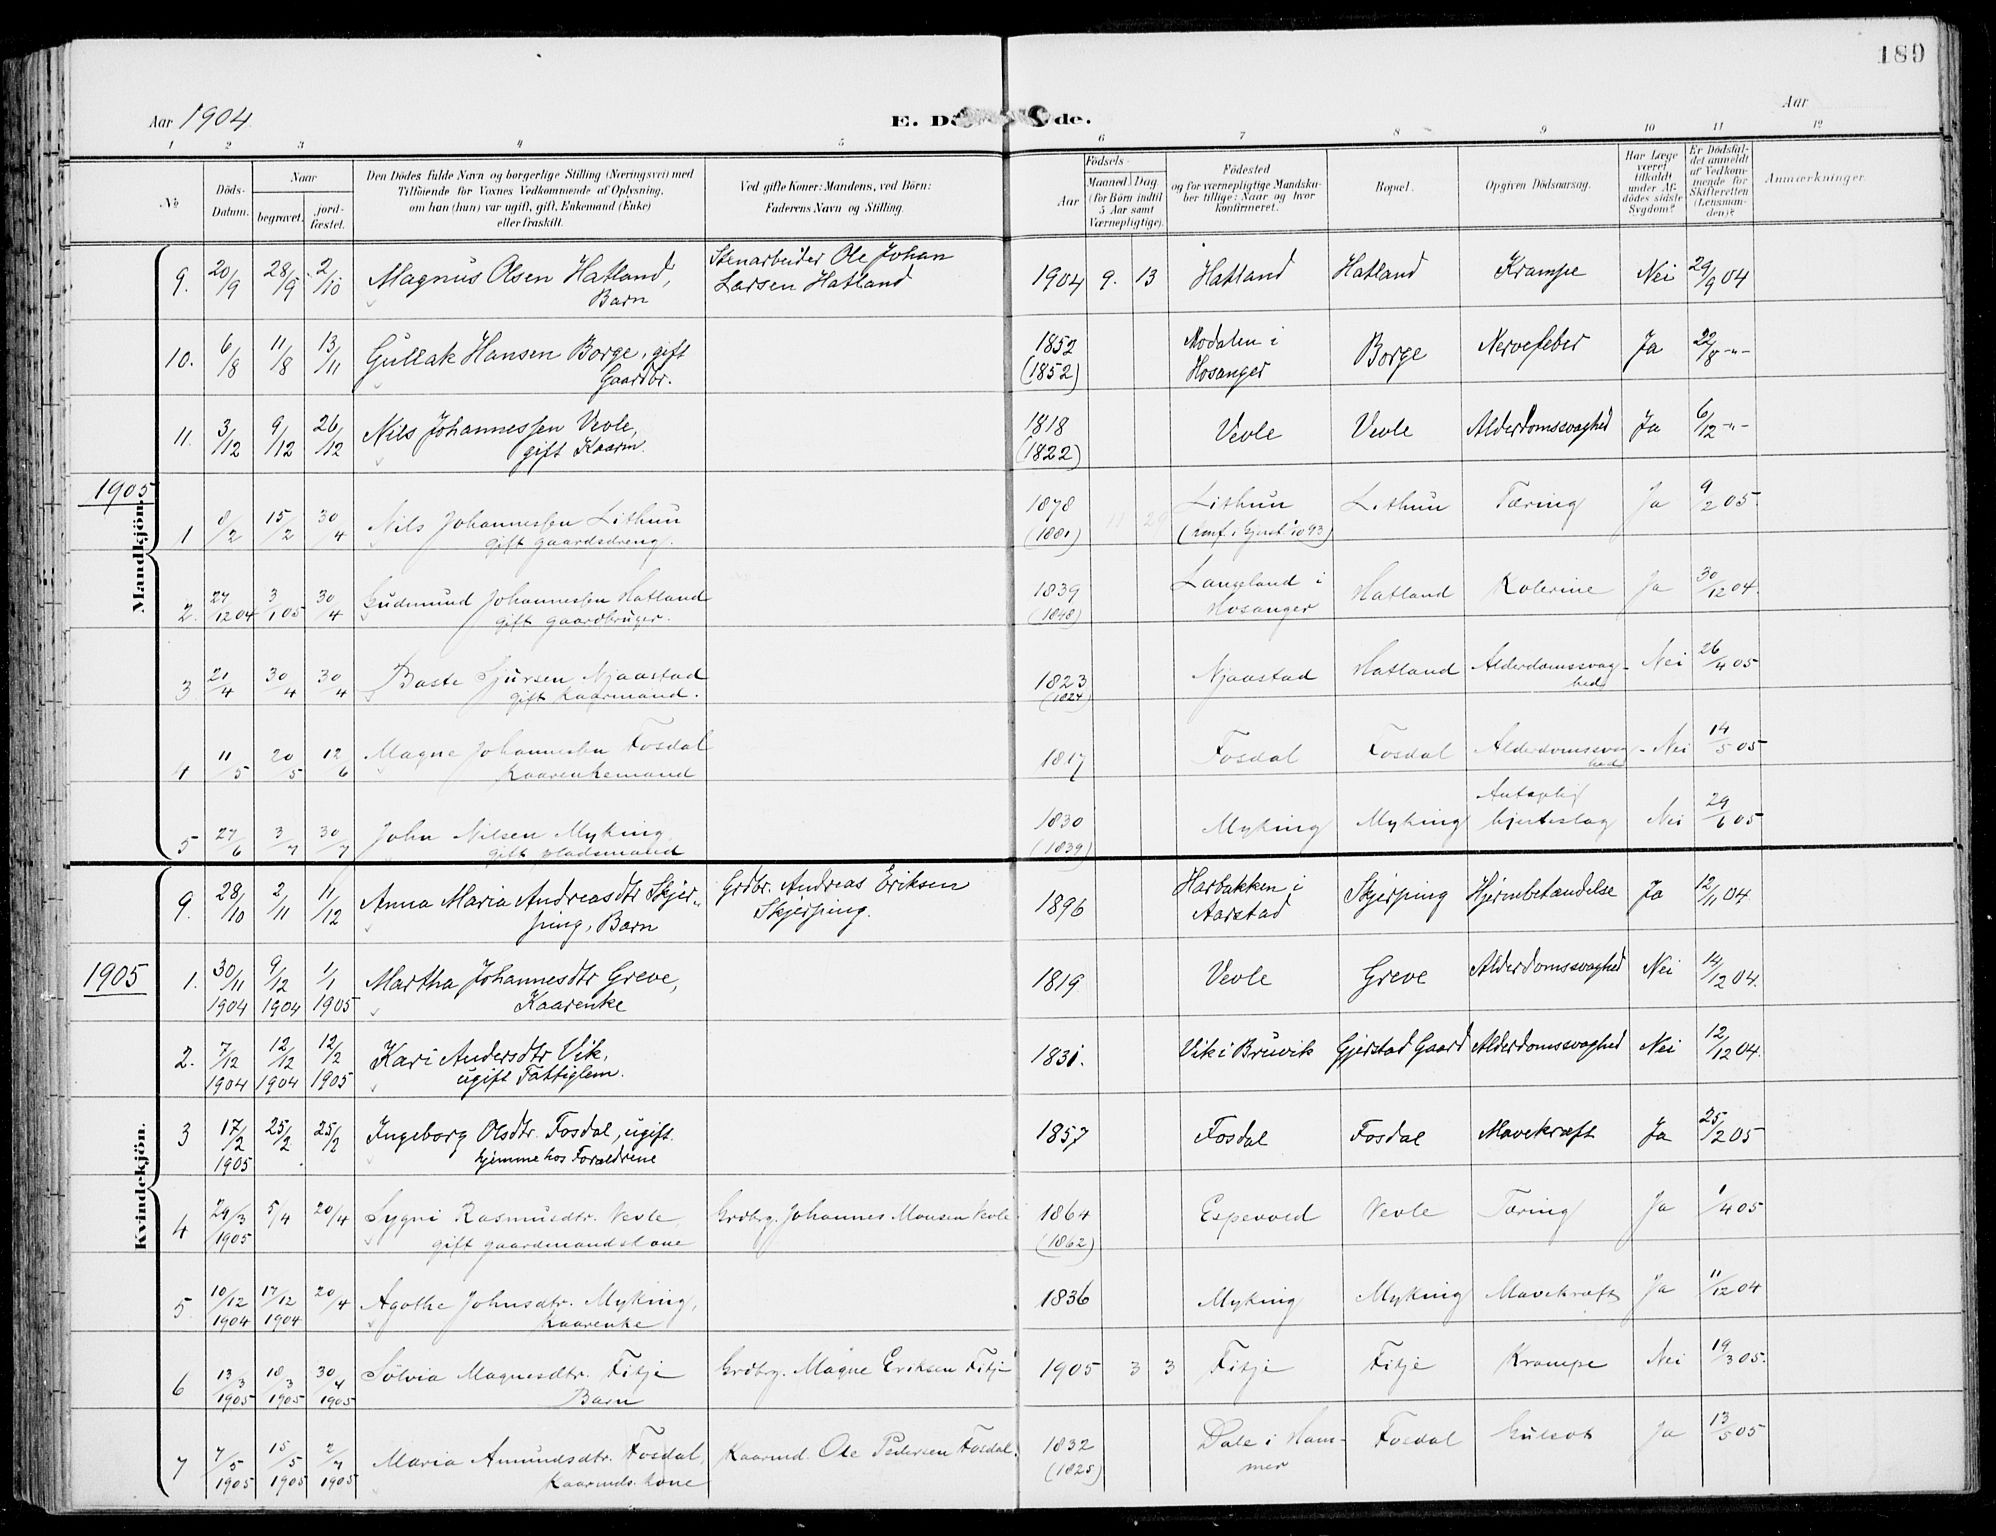 189
Aar 1904
E. Dö de.
Aar
1 2 3 4 5 6 7 8 9 10 11 12
No
Döds-
Datum.
Naar
begravet.
jord-
fæstet.
Den Dödes fulde Navn og borgerlige Stilling (Næringsvei) med
Tilföiende for Voxnes Vedkommende af Oplysning,
om han (hun) var ugift, gift, Enkemand (Enke)
eller fraskilt.
Ved gifte Koner: Mandens, ved Börn:
Faderens Navn og Stilling.
Födsels-
Aar
Maaned
Dag
(for Börn indtil
5 Aar samt
Værnepligtige).
Födested
og for værnepligtige Mandska-
ber tillige: Naar og hvor
konfirmeret.
Bopæl.
Opgiven Dödsaarsag.
Har Læge
været
tilkaldt
under Af-
dödes sidste
Sygdom?
Er Dödsfal-
det anmeldt
af Vedkom-
mende for
Skifteretten
(Lensman-
den)?
Anmærkninger
Mandkjön.
9. 20/9 28/9 2/10 Magnus Olsen Hatland, Stenarbeider Ole Johan 1904 9. 13 Hatland Hatland Krampe Nei 29/9 04
Barn Larsen Hatland
10. 6/8 11/8 13/11 Gullak Hansen Borge, gift 1852 Modalen i Borge Nervefeber Ja 22/8 -"-
Gaardbr. (1852) Hosanger
11. 3/12 9/12 26/12 Nils Johannessen Vevle, 1818 Vevle Vevle Alderdomssvaghed Ja 6/12 -"-
gift Kaarm. (1822)
1905
1 8/2 15/2 30/4 Nils Johannessen Lithun 1878 Lithun Lithun Tæring Ja 9/2 05.
gift gaardsdreng. (1881)
2. 27/12 04 3/1 05 30/4 Gudmund Johannessen Hatland 1839 Langeland i Hatland Kolerine Ja 30/12 04.
gift gaardbruger. (1848) Hosanger
3 21/4 30/4 30/4 Baste Sjursen Njaastad 1823 Njaastad Hatland Alderdomssvag- Nei 26/4 05
gift kaarmand. (1824) hed
4 11/5 20/5 12/6 Magne Johannessen Fosdal 1817 Fosdal Fosdal Alderdomssvag- Nei 14/5 05
kaarenkemand hed
5 27/6 3/7 30/7 John Nilsen Myking, 1830 Myking Myking Antagelig hjerteslag Nei 29/6 05
gift pladsmand (1839)
Kvindekjön.
9. 28/10 2/11 11/12 Anna Maria Andreasdtr Skjer- Grdbr. Andreas Eriksen 1896 Harbakken i Skjerping Hjernbetændelse Ja 12/11 04.
ping, Barn Skjerping. Aarstad
1905
1. 30/11 1904 9/12 1904 1/1 1905 Martha Johannesdtr Greve, 1819 Vevle Greve Alderdomssvaghed Nei 14/12 04.
Kaarenke
2. 7/12 1904 12/12 1904 12/2 1905 Kari Andersdtr Vik, 1831. Vik i Bruvik Gjerstad Gaard Alderdomssvaghed Nei 12/12 04.
ugift Fattiglem.
3 17/2 1905 25/2 25/2 Ingeborg Olsdtr. Fosdal, ugift. 1857 Fosdal Fosdal Mavekræft Ja 25/2 05
hjemme hos Forældrene
4 29/3 1905 5/4 20/4 Sygni Rasmusdtr. Vevle, Grdbrg. Johannes Monsen Vevle 1864 Espevold Vevle Tæring Ja 1/4 05
gift gaardmandskone (1862)
5 10/12 1904 17/12 1904 20/4 Agathe Johnsdtr. Myking, 1836 Myking Myking Mavekræft Ja 11/12 04
kaarenke
6 13/3 1905 18/3 1905 30/4 1905 Sölvia Magnesdtr. Fitje Grdbrg. Magne Eriksen Fitje 1905 3 3 Fitje Fitje Krampe Nei 19/3 05.
Barn
7 7/5 1905 15/5 1905 2/7 1905 Maria Amundsdtr. Fosdal, Kaarmd. Ole Pedersen Fosdal. 1832 Dale i Ham- Fosdal Gulsot Ja 13/5 05
Kaarmds. kone (1825) mer